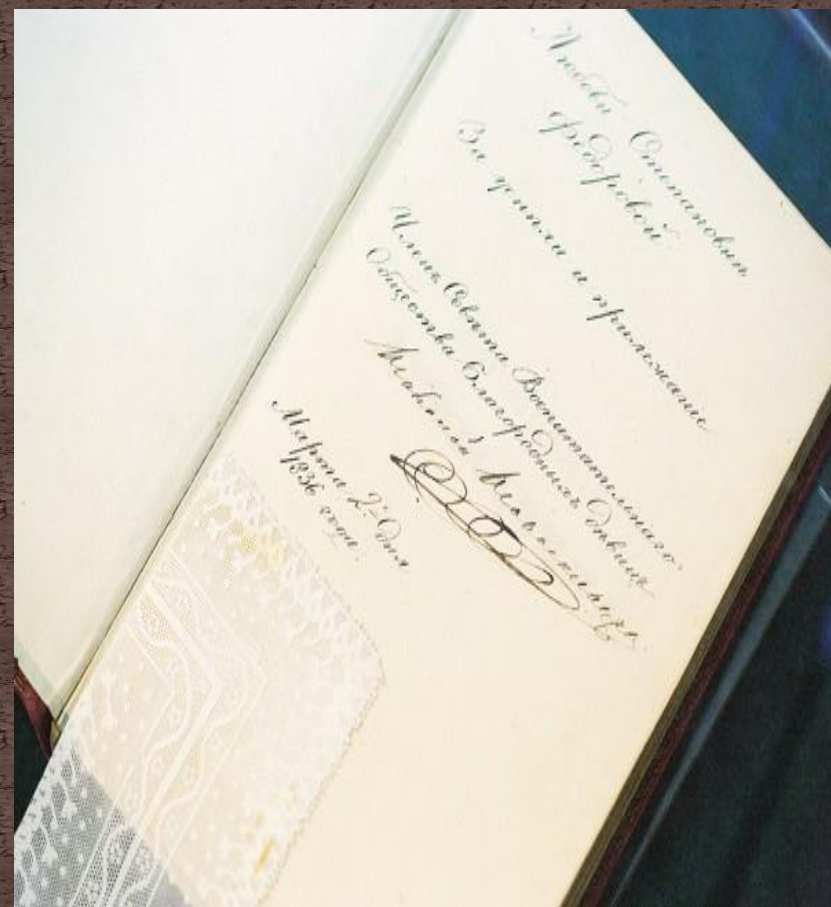 Любови Степановнѣ
Федоровой.
За успѣхи и прилежаніе
Членъ Совѣта Воспитательнаго
Общества Благородныхъ дѣвицъ
Марта 2го дня
1836 года.